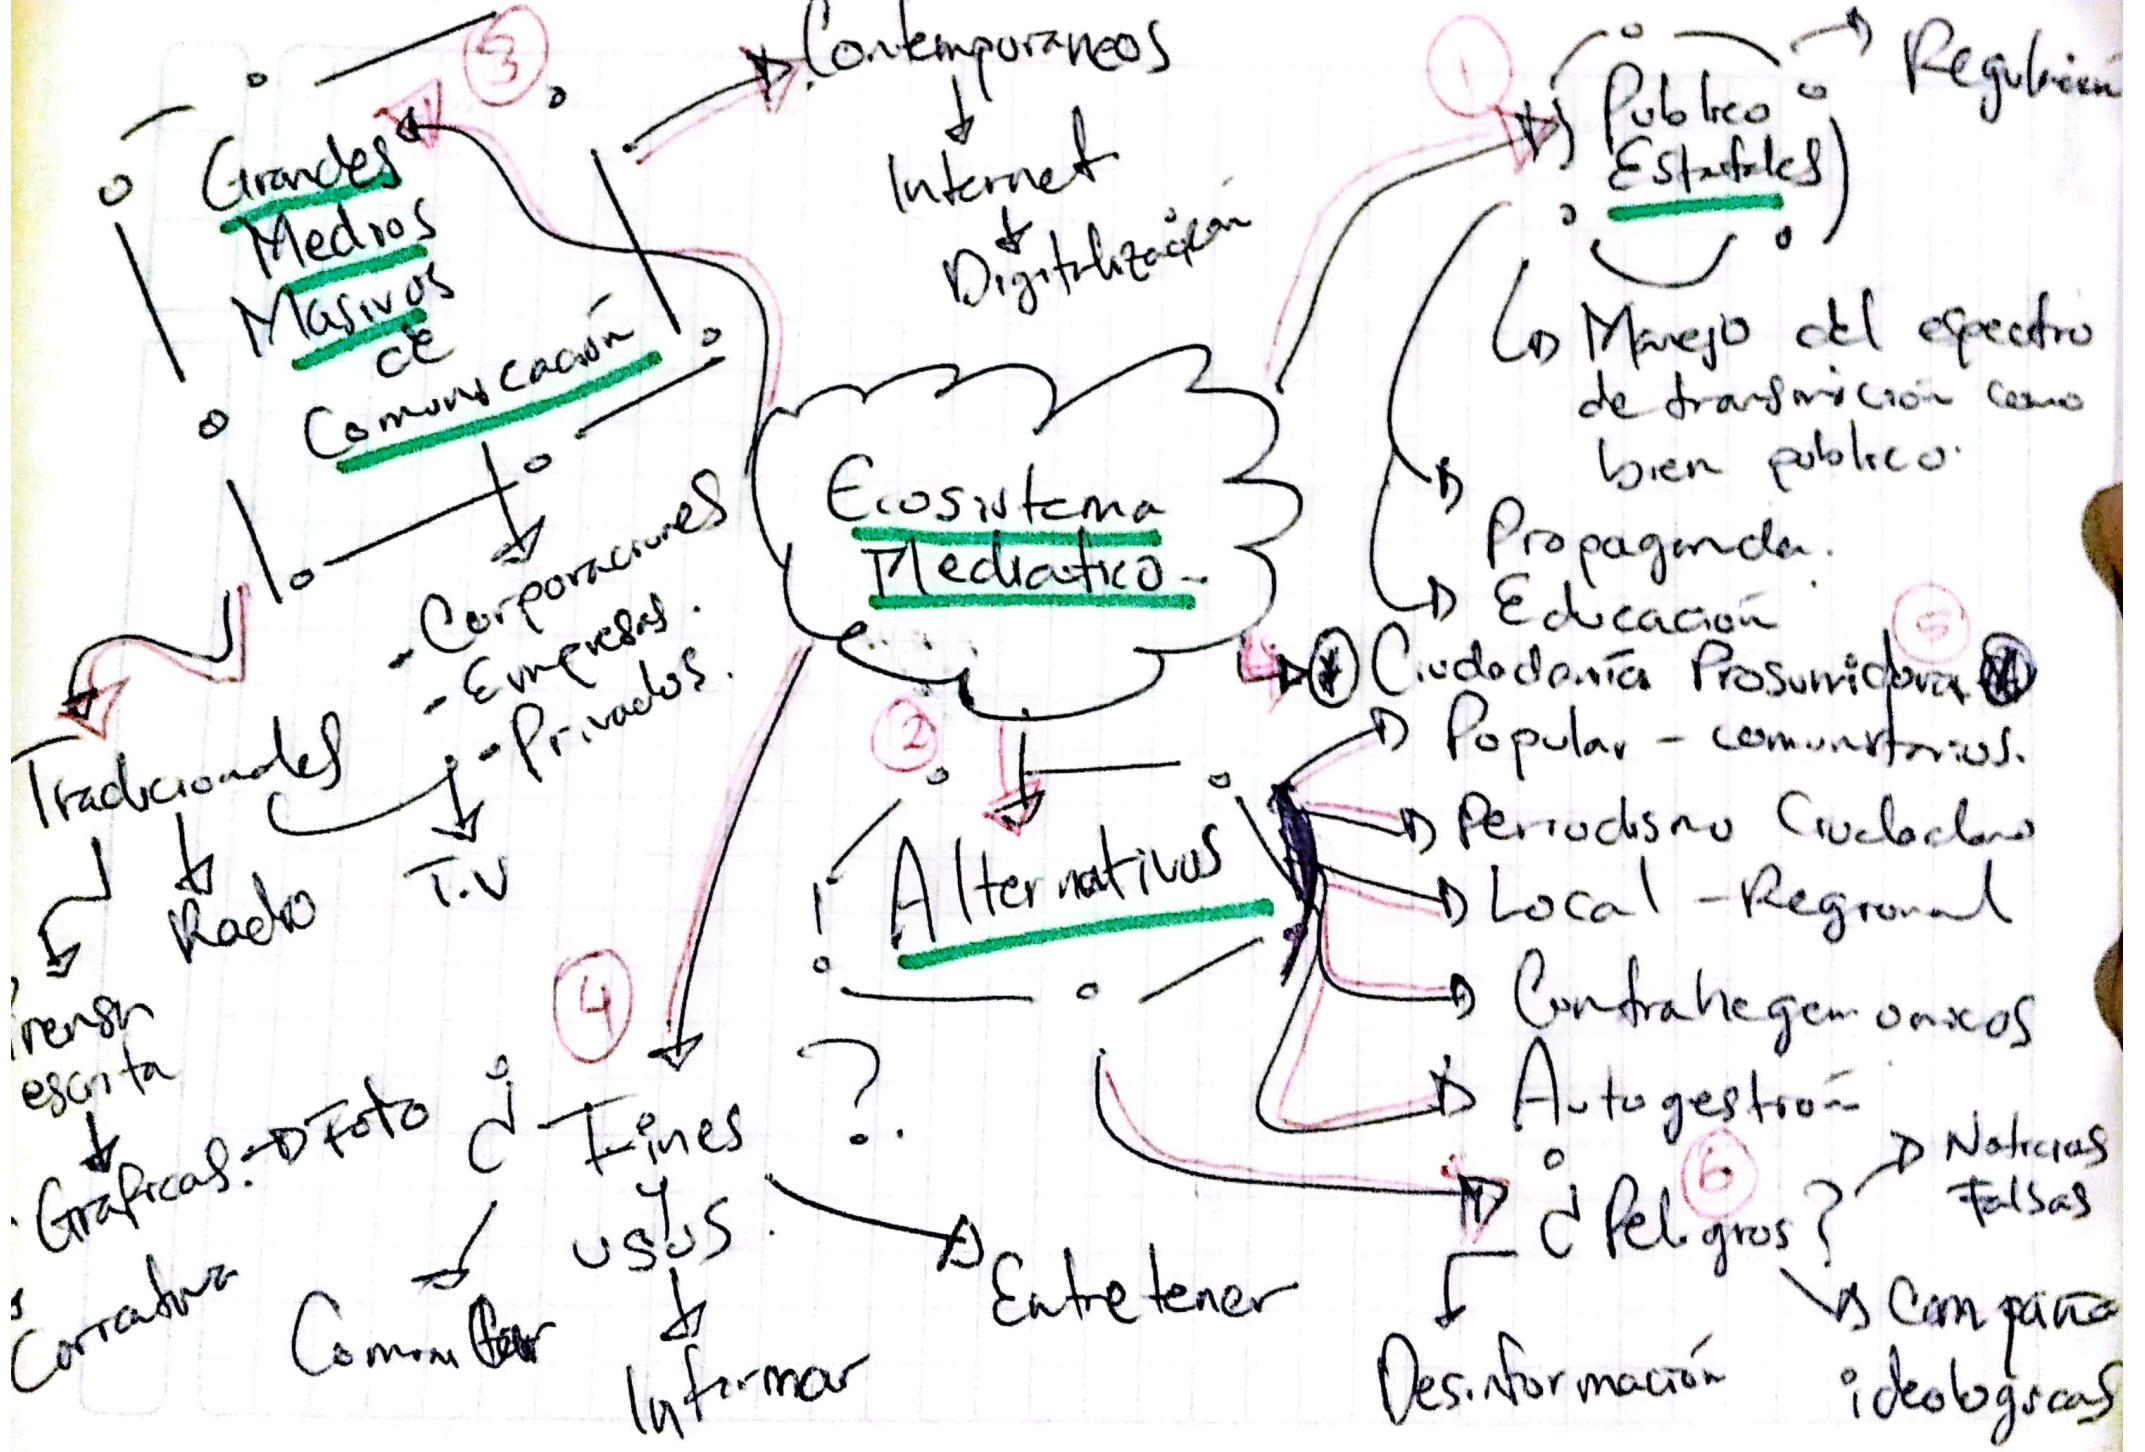 3
Grandes
Medios
Masivos
de
Comunicación
Contemporaneos
Internet
Digitalización
1
Publico
Estatales
Regulación
Manejo del espectro
de transmición como
bien publico.
Propaganda.
Educación
Ecosistema
Mediatico
- Corporaciones
- Empresas.
- Privados.
Tradicionales
Radio
T.V
Prensa
escrita
Graficas. Foto
5
Ciudadanía Prosumidora
2
Alternativos
Popular - comunitarios.
Periodismo Ciudadano
Local - Regional
Contrahegemonicos
Autogestión
4
¿ Fines ?
y
usos.
Comunicar
Informar
Entretener
6
¿Peligros?
Noticias
Falsas
Desinformación
Campaña
ideologicas